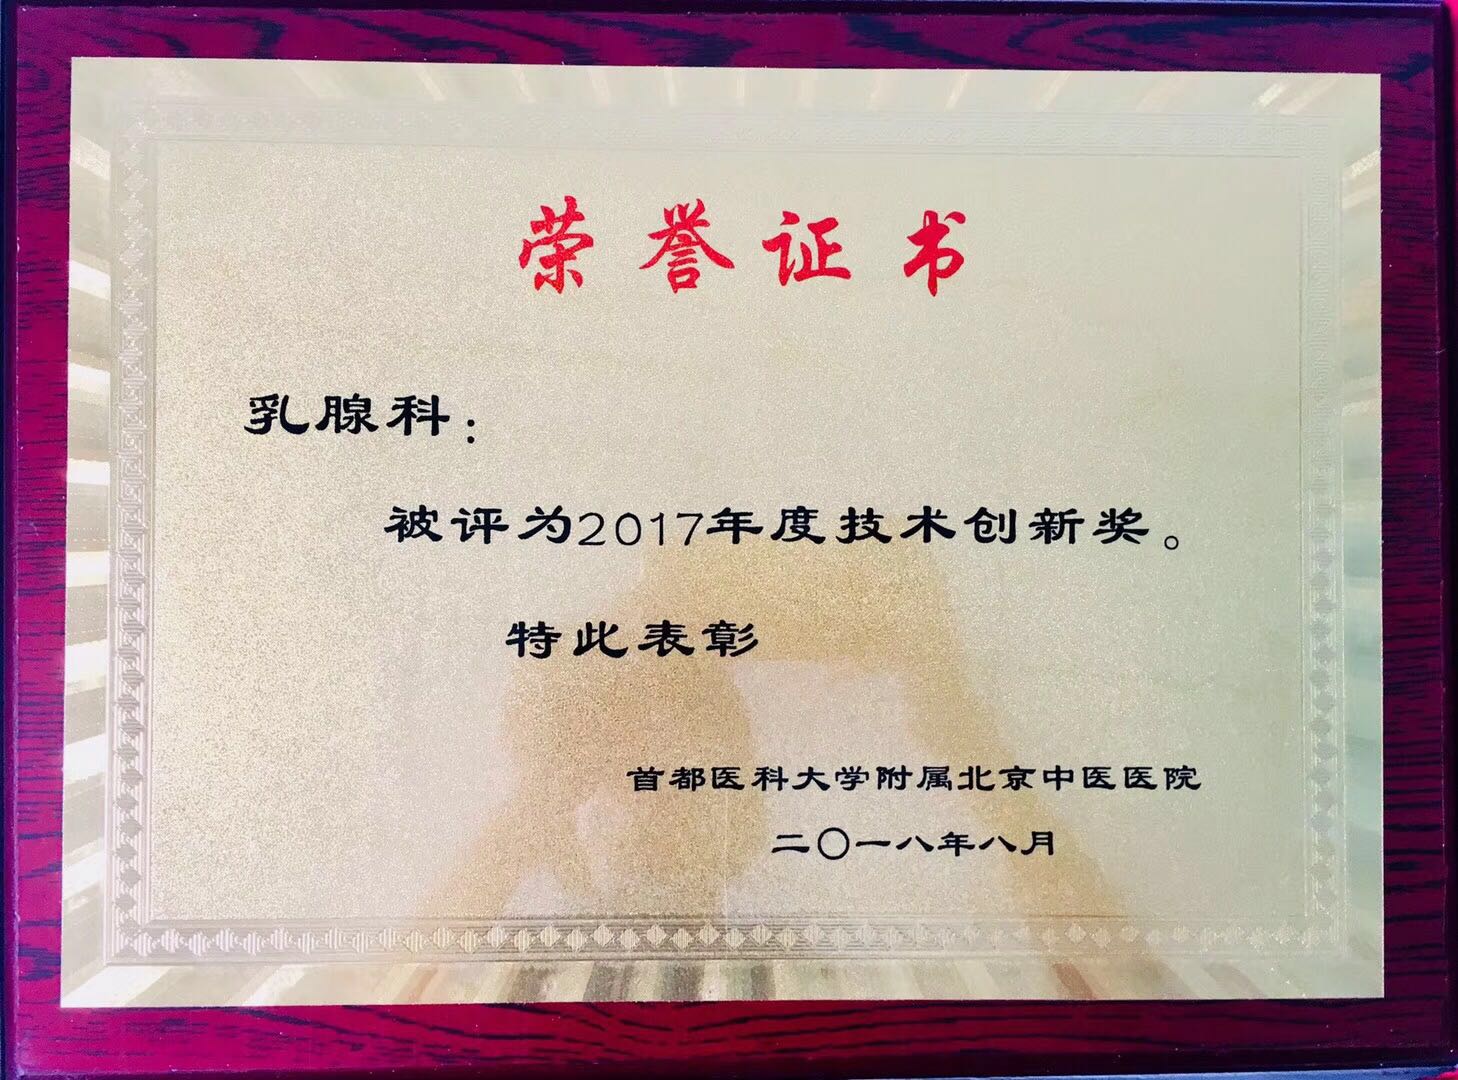 荣誉证书
乳腺科：
被评为2017年度技术创新奖。
特此表彰
首都医科大学附属北京中医医院
二〇一八年八月